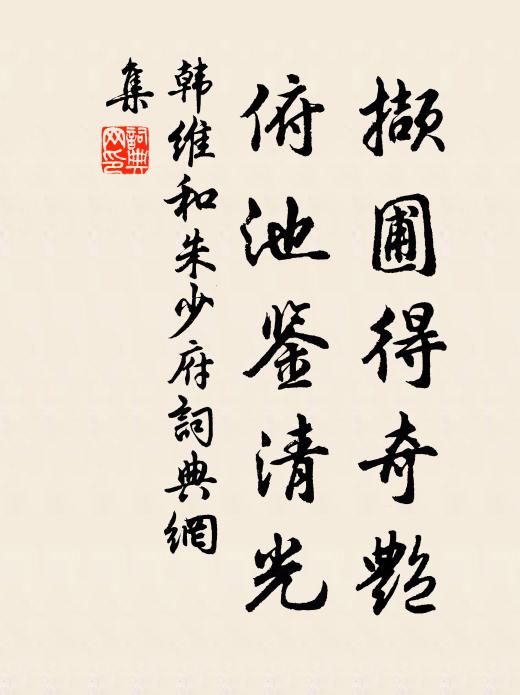 擷圃得奇艷
俯池鉴清光
韩维和朱少府詞典網
集
詞典網印